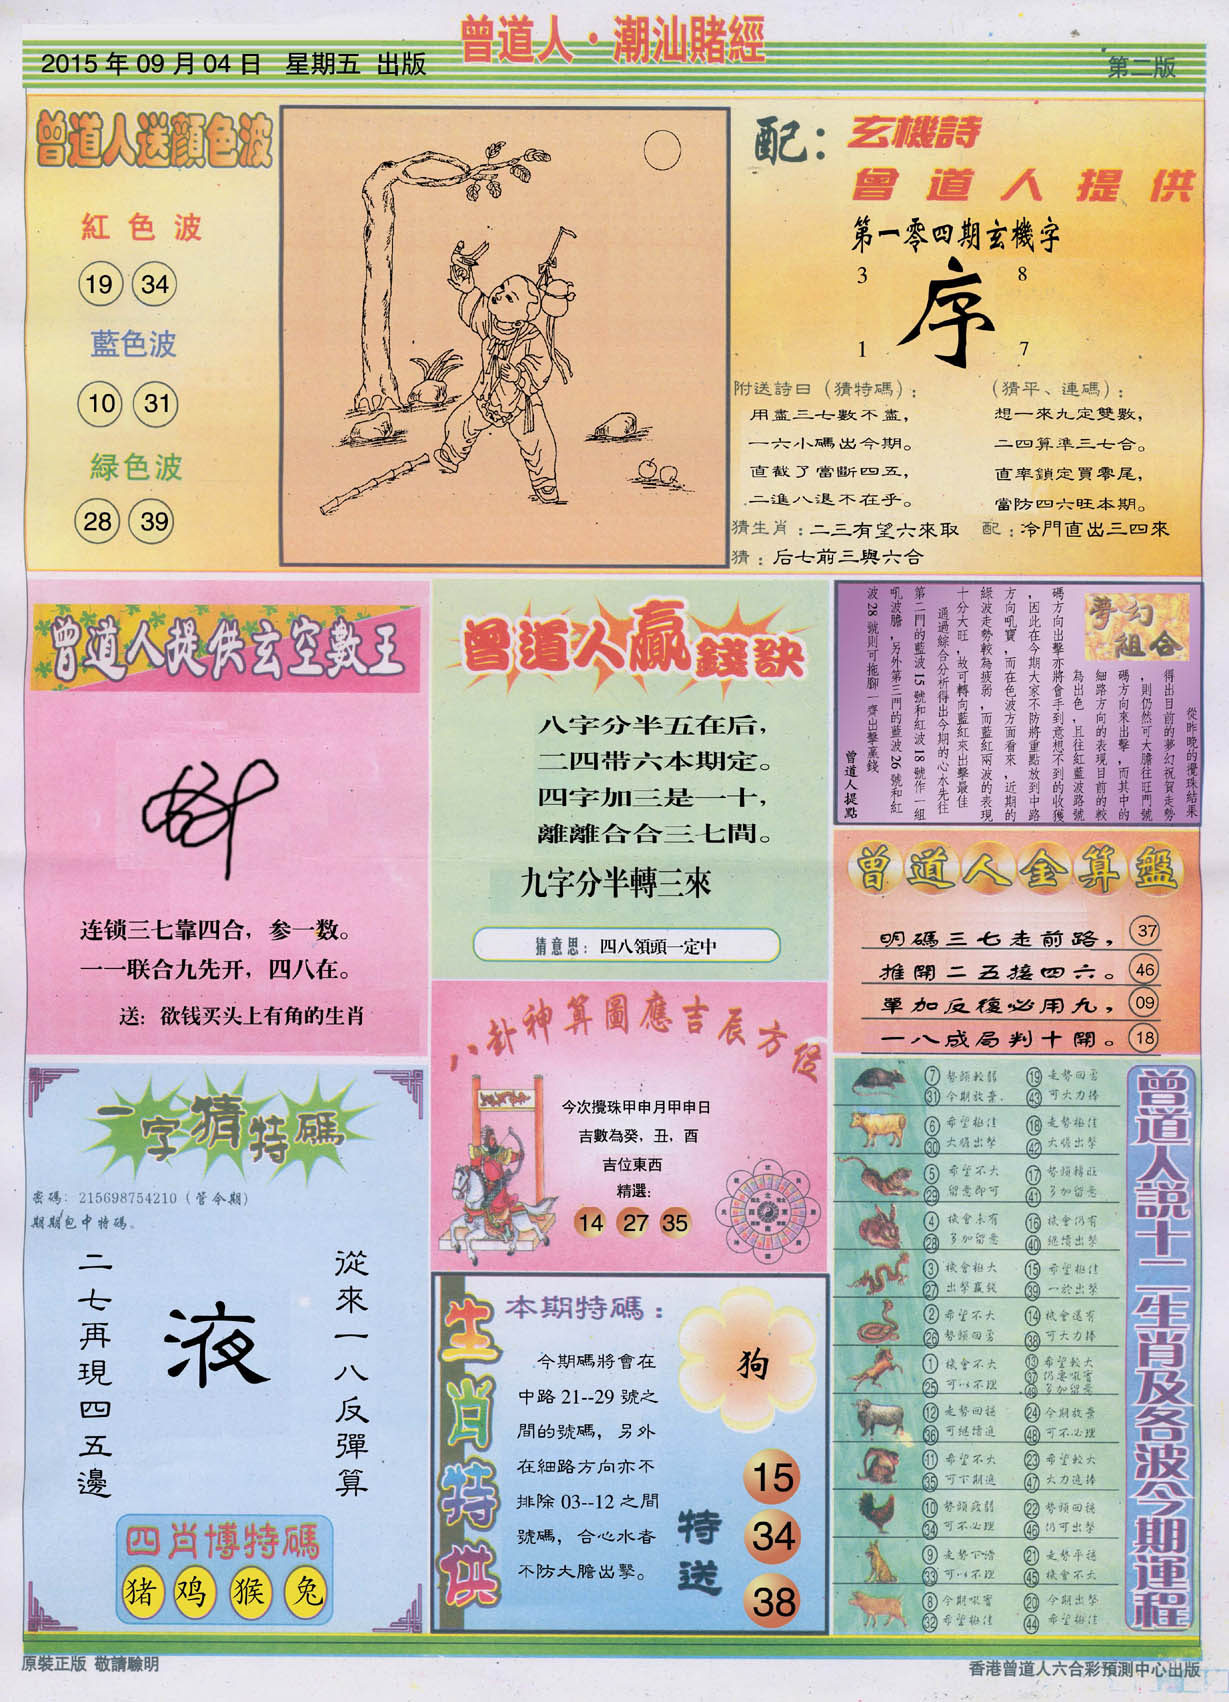 曾道人·潮汕賭經
2015年09月04日 星期五 出版
第二版
曾道人送顏色波
紅色波
19 34
藍色波
10 31
緑色波
28 39
配:
玄機詩
曾道人提供
第一零四期玄機字
3 8
序
1 7
附送詩日(猜特碼):
用盡三七數不盡，
一六小碼出今期。
直截了當斷四五，
二進八退不在乎。
(猜平、連碼):
想一來九定雙數，
二四算準三七合。
直率鎖定買零尾，
當防四六旺本期。
猜生肖:二三有望六來取
配:冷門直出三四來
猜:后七前三與六合
曾道人提供玄空數王
连锁三七靠四合，参一数。
一一联合九先开，四八在。
送：欲钱买头上有角的生肖
曾道人贏錢訣
八字分半五在后，
二四带六本期定。
四字加三是一十，
離離合合三七間。
九字分半轉三來
猜意思：四八領頭一定中
夢幻
組合
從昨晚的攪珠結果
得出目前的夢幻祝賀走勢
，則仍然可大膽往旺門號
碼方向來出擊，而其中的
細路方向的表現目前的較
為出色，且往紅藍波路號
碼方向出擊亦將會手到意想不到的收獲
，因此在今期大家不防將重點放到中路
方向吼寶，而在色波方面看來，近期的
綠波走勢較為疲弱，而藍紅兩波的表現
十分大旺，故可轉向藍紅來出擊最佳
通過綜合分析得出今期的心水先往
第二門的藍波15號和紅波18號作一組
吼波膽，另外第三門的藍波26號和紅
波28號則可拖腳一齊出擊贏錢
曾道人提點
曾道人金算盤
明碼三七走前路，37
推開二五接四六。46
單加反復必用九，09
一八成局判十開。18
一字猜特碼
密碼：215698754210(管令期)
期期包中特碼。
從來一八反彈算
液
二七再現四五邊
四肖博特碼
猪 鸡 猴 兔
八卦神算圖應吉辰方位
今次攪珠甲申月甲申日
吉數為癸，丑，酉
吉位東西
精選：
14 27 35
生肖特供
本期特碼：
今期碼將會在
中路21--29號之
間的號碼，另外
在細路方向亦不
排除03--12之間
號碼，合心水者
不防大膽出擊。
狗
特送
15
34
38
曾道人説十二生肖及各波今期運程
7 勢頭較弱 19 走勢回勇
31 今期放棄 43 可大力捧
6 希望極佳 18 走勢極佳
30 大膽出擊 42 大膽出擊
5 希望不大 17 勢頭轉旺
29 留意即可 41 多加留意
4 機會未有 16 機會仍有
28 多加留意 40 繼續出擊
3 機會極大 15 希望極佳
27 出擊贏錢 39 一於出擊
2 希望不大 14 機會還有
26 勢頭回勇 38 可大力捧
1 機會不大 13 希望較大
25 可以不理 37 仍要吼實
49 多加留意
12 走勢回穩 24 今期放棄
36 可繼續追 48 可不必理
11 希望不大 23 希望較大
35 可下期追 47 大力追捧
10 勢頭疲弱 22 勢頭回穩
34 可不必理 46 仍可出擊
9 走勢下滑 21 走勢平穩
33 可以不理 45 機會不大
8 今期吼實 20 今期出擊
32 希望極佳 44 希望極佳
原裝正版 敬請驗明
香港曾道人六合彩預測中心出版